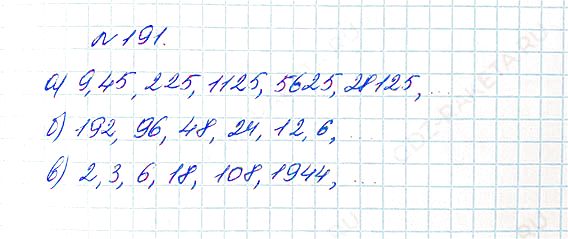 №191.
а) 9, 45, 225, 1125, 5625, 28125, ...
б) 192, 96, 48, 24, 12, 6, ...
в) 2, 3, 6, 18, 108, 1944, ...
GDZ-RAKETA.RU